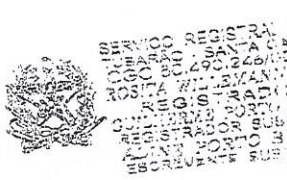 SERVIÇO REGISTRAL
TUBARÃO - SANTA C
CGC 80.490.246/
ROSITA WILLEMANN
REGISTRADO
GUILHERME PORTU
REGISTRADOR SUB
ALINE PORTO B
ESCREVENTE SUB